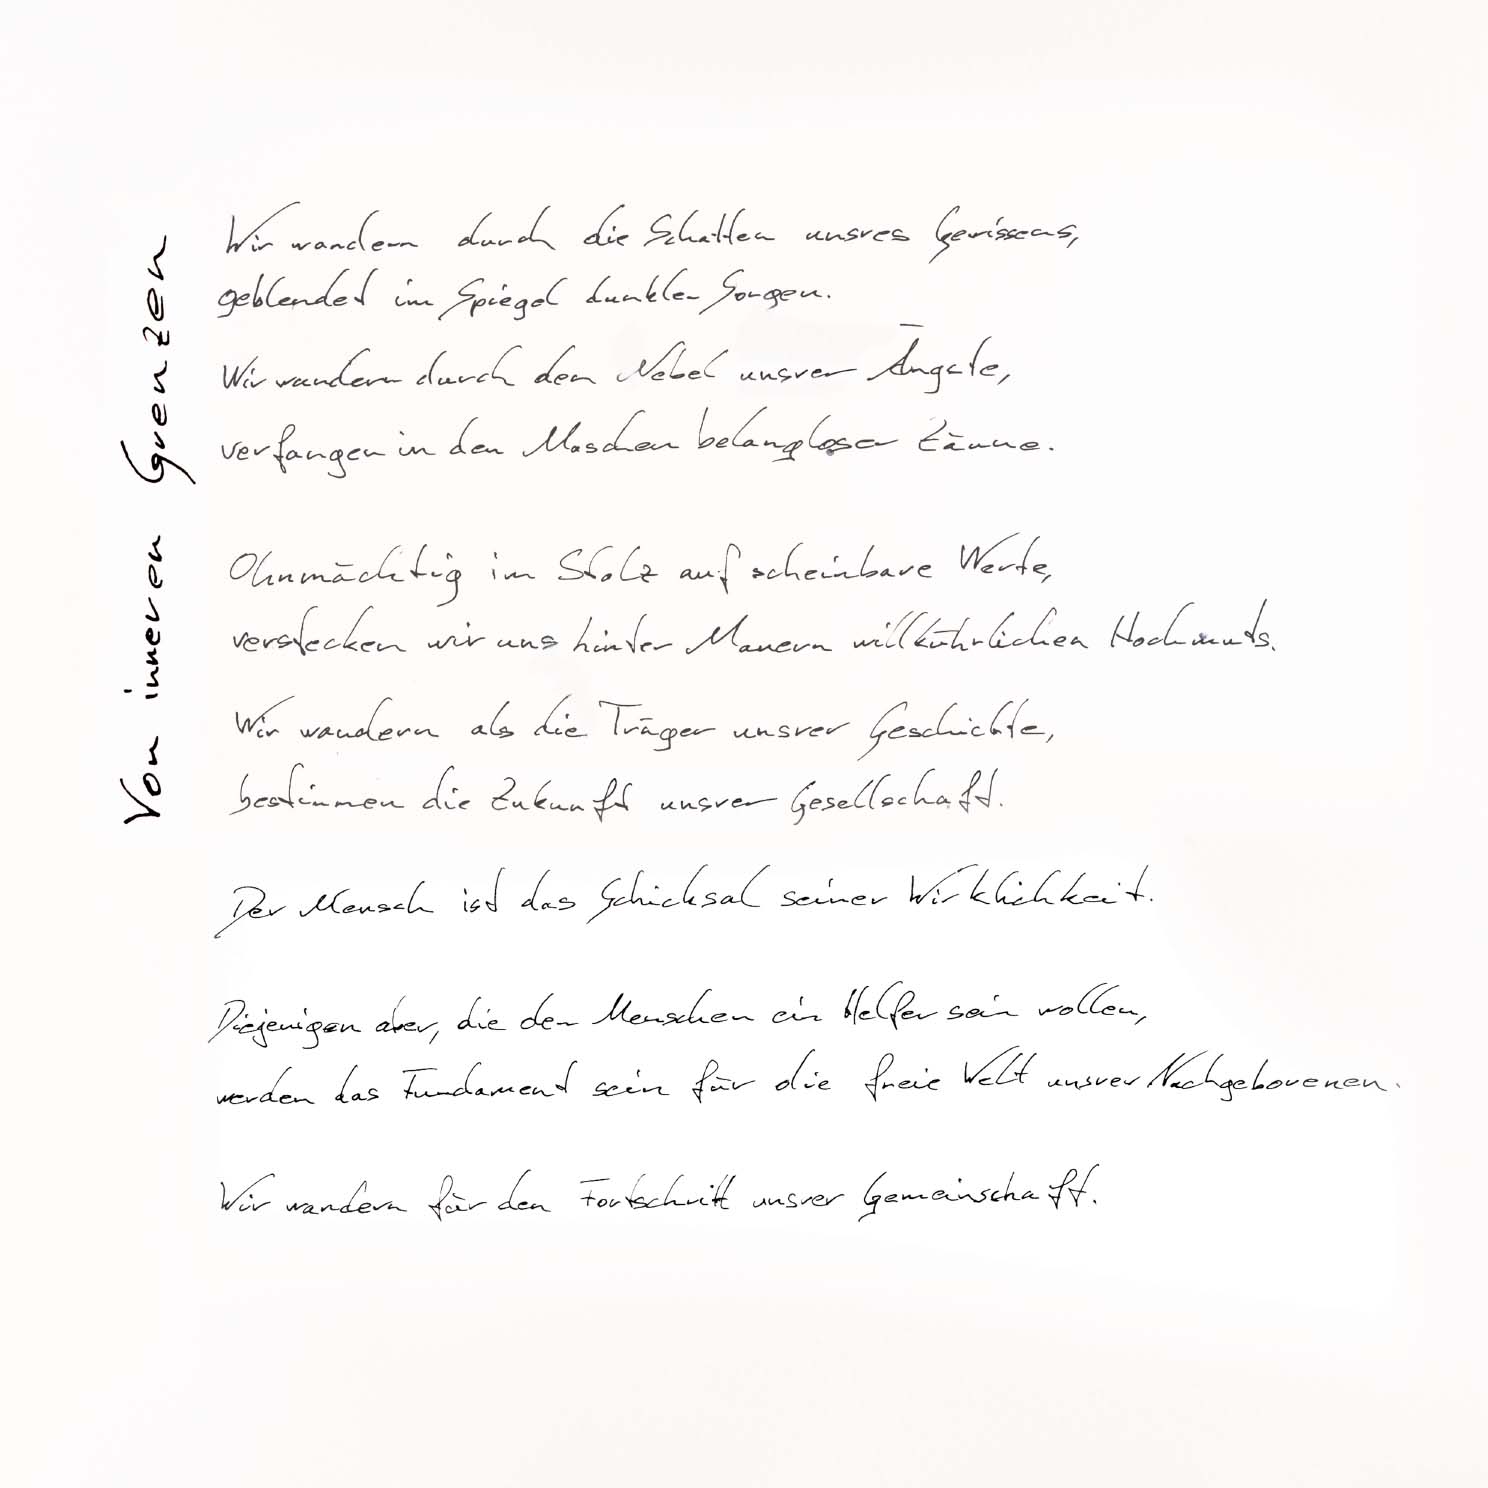 Von inneren Grenzen
Wir wandern durch die Schatten unsres Gewissens,
geblendet im Spiegel dunkler Sorgen.
Wir wandern durch den Nebel unsrer Ängste,
verfangen in den Maschen belangloser Zäune.
Ohnmächtig im Stolz auf scheinbare Werte,
verstecken wir uns hinter Mauern willkührlichen Hochmuts.
Wir wandern als die Träger unsrer Geschichte,
bestimmen die Zukunft unsrer Gesellschaft.
Der Mensch ist das Schicksal seiner Wirklichkeit.
Diejenigen aber, die den Menschen ein Helfer sein wollen,
werden das Fundament sein für die freie Welt unsrer Nachgeborenen.
Wir wandern für den Fortschritt unsrer Gemeinschaft.